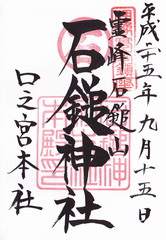 平成二十五年九月十五日
霊峰石鎚山
石鎚神社
口之宮本社